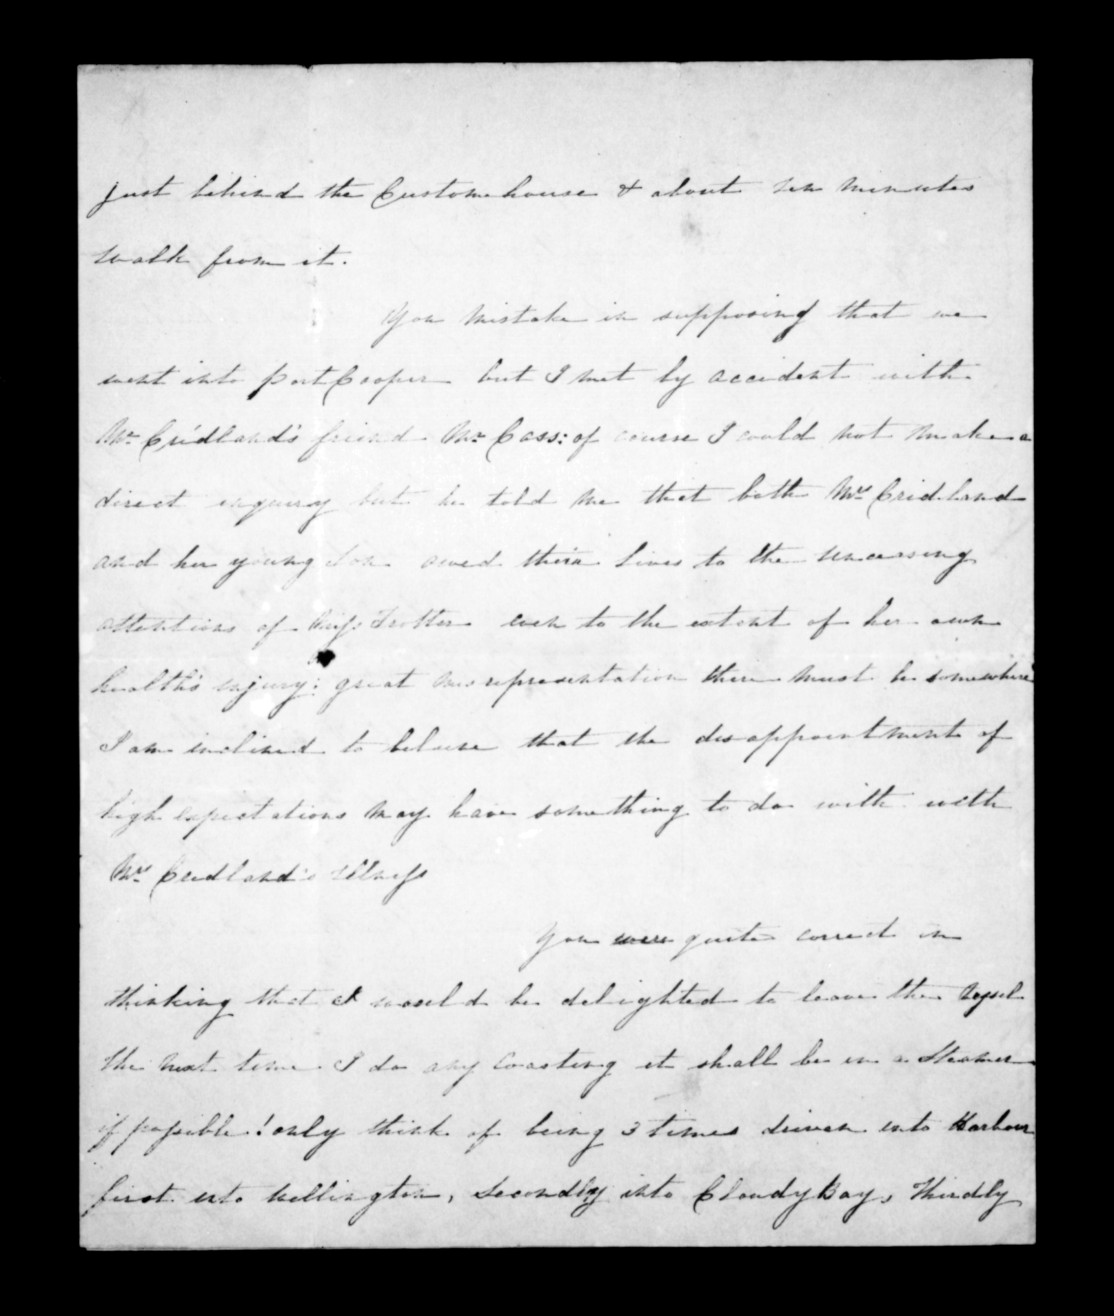 just behind the Custom house & about ten minutes
walk from it.
You mistake in supposing that we
went into port Cooper but I met by accident with
Mr Cridland's friend Mr Cass: of course I could not make a
direct enquiry but he told me that both Mrs Cridland
and her young Son owed their lives to the unceasing
attentions of Miss Trotter even to the extent of her own
health's injury: great misrepresentation there must be somewhere
I am inclined to believe that the disappointment of
high expectations may have something to do with with
Mrs Cridland's illness
You were quite correct in
thinking that I would be delighted to leave the Vessel
the next time I do any Coasting it shall be in a Steamer
if possible! only think of being 3 times driven into Harbour
first into Wellington, Secondly into Cloudy Bay, Thirdly